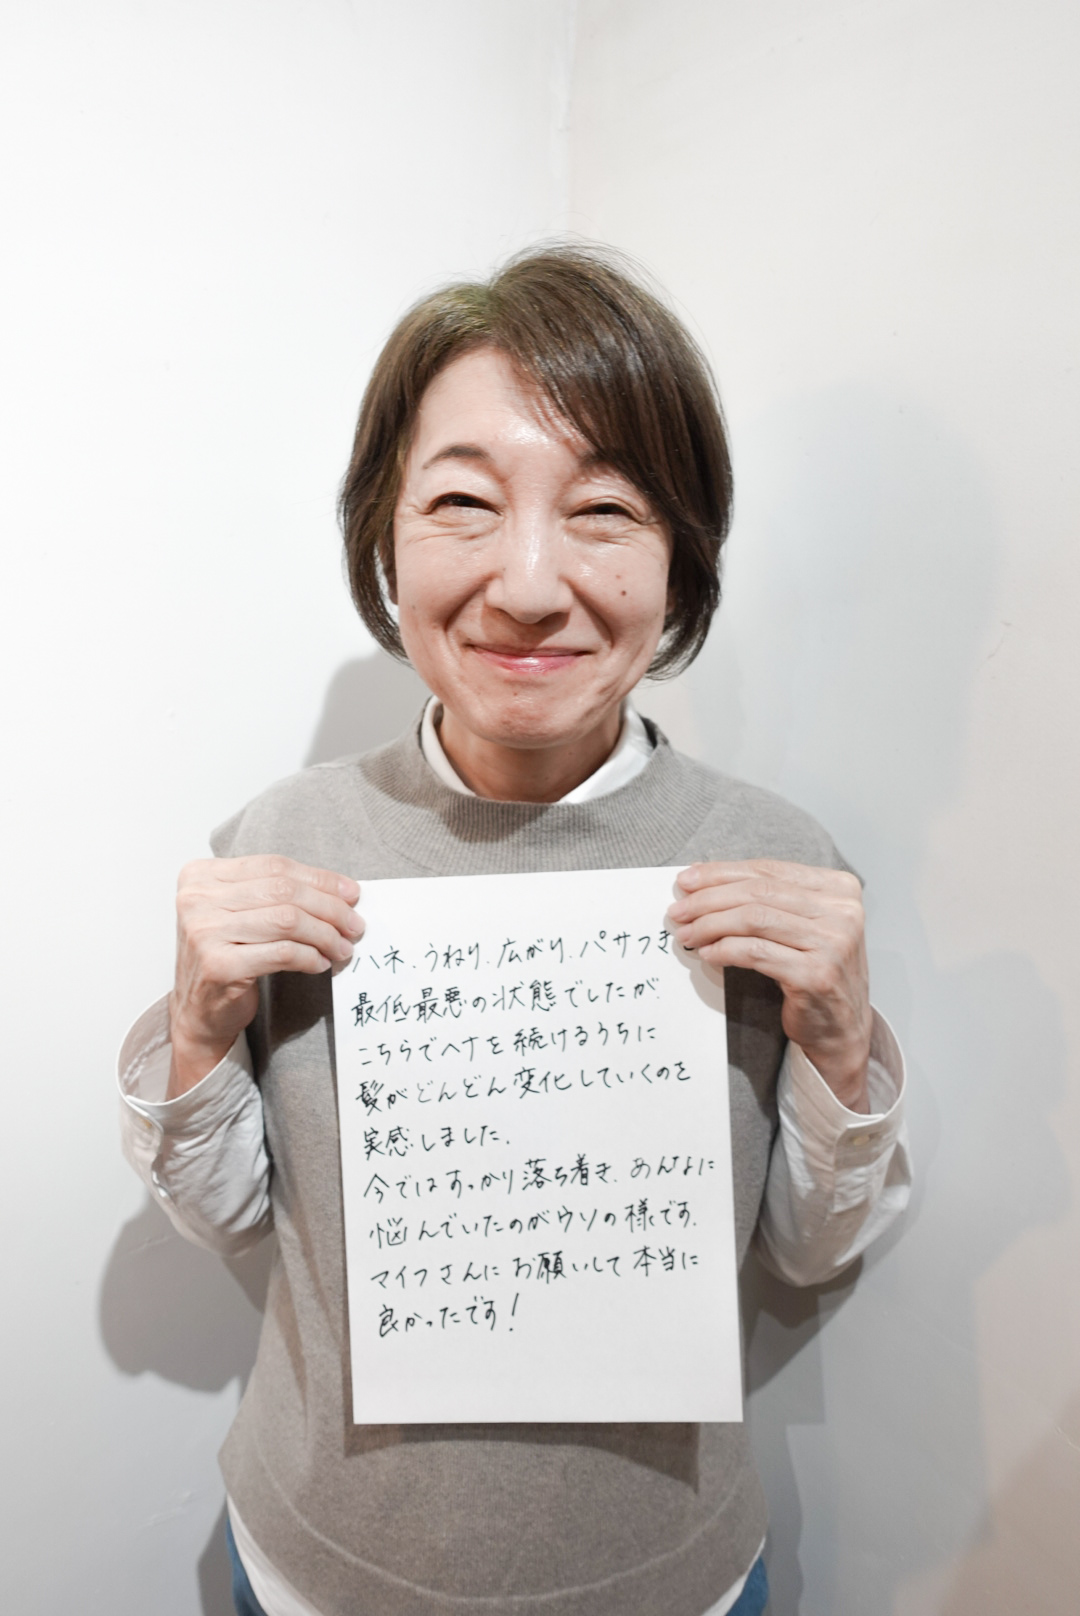 ハネ、うねり、広がり、パサつきと
最低最悪の状態でしたが、
こちらでヘナを続けるうちに
髪がどんどん変化していくのを
実感しました。
今ではすっかり落ち着き、あんなに
悩んでいたのがウソの様です。
マイフさんにお願いして本当に
良かったです!